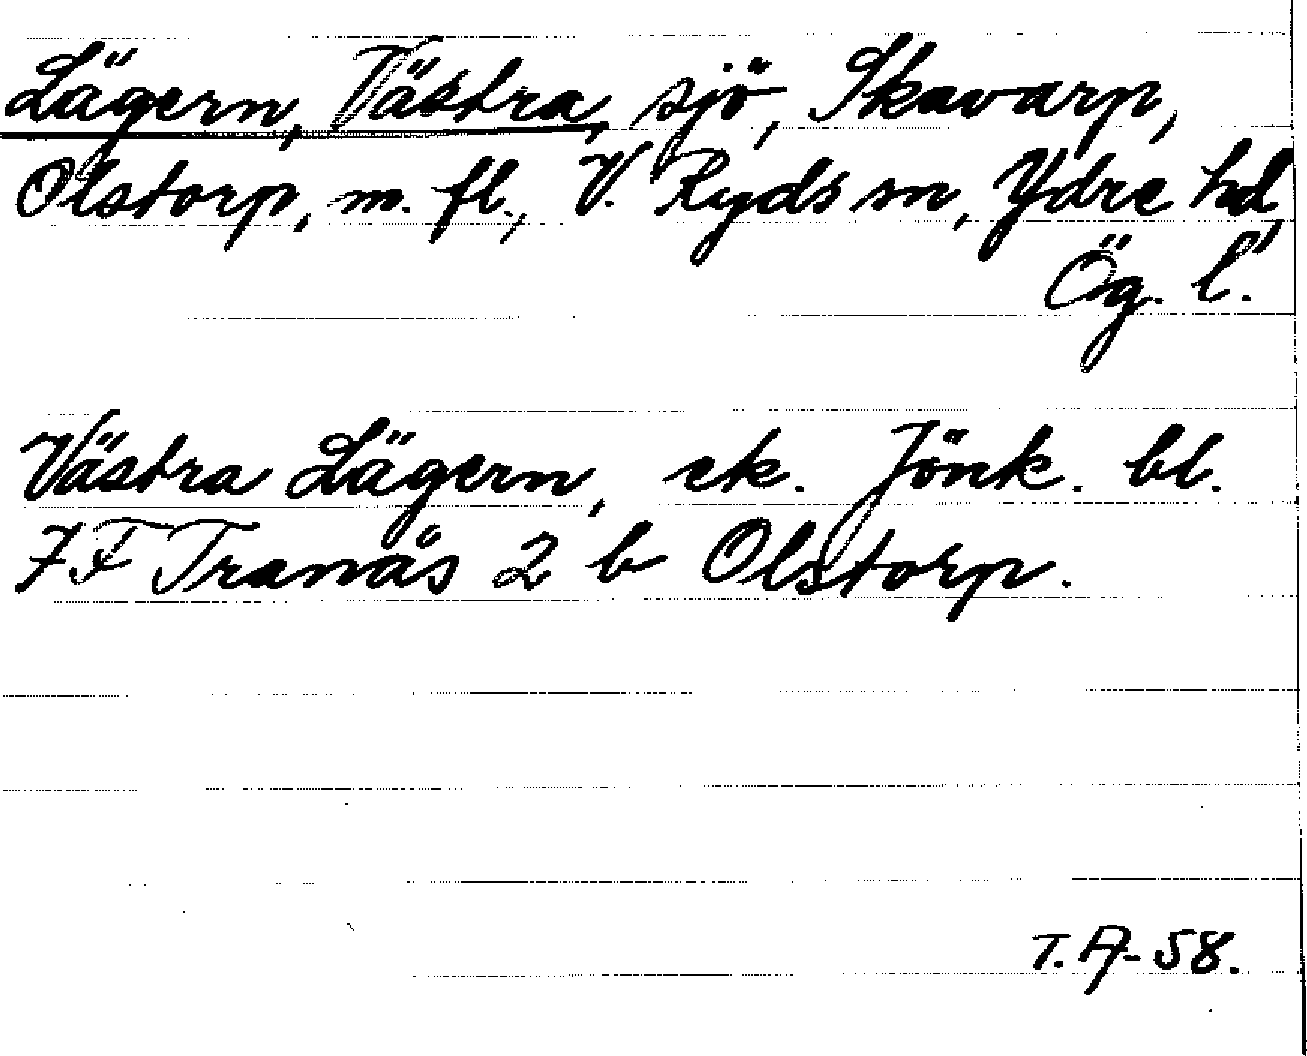 Lägern, Västra, sjö, Skavarp,
Olstorp, m. fl., V. Ryds sn, Ydre hd,
Ög. l.
Västra Lägern, ek. Jönk. bl.
7F Tranås 2 b Olstorp.
T. A-58.